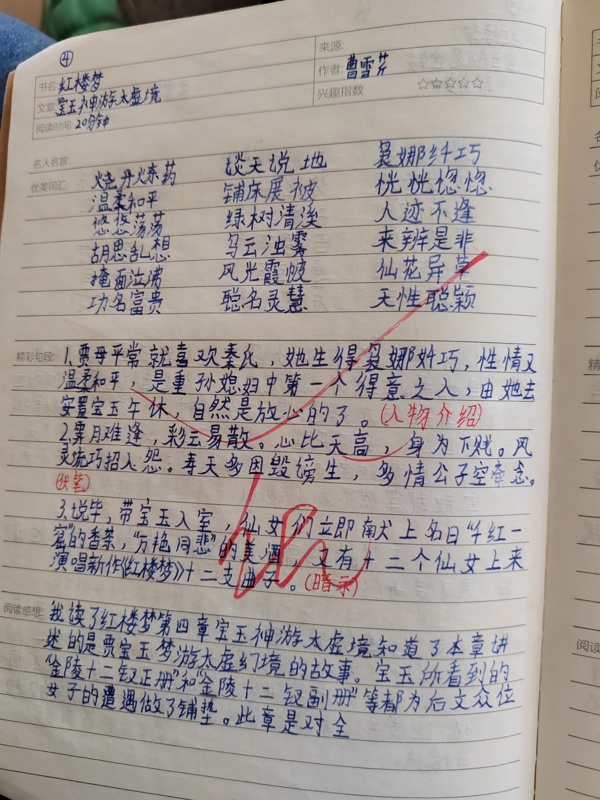 ④
书名 红楼梦
来源:
文章 宝玉神游太虚境
作者: 曹雪芹
阅读时间: 20分钟
兴趣指数 ☆☆☆☆☆
名人名言:
优美词汇: 烧丹炼药 谈天说地 袅娜纤巧
温柔和平 铺床展被 恍恍惚惚
悠悠荡荡 绿树清溪 人迹不逢
胡思乱想 乌云浊雾 来辨是非
掩面泣涕 风光霞帔 仙花异草
功名富贵 聪名灵慧 天性聪颖
精彩句段: 1.贾母平常就喜欢秦氏，她生得袅娜奸巧，性情又
温柔和平，是重孙媳妇中第一个得意之人，由她去
安置宝玉午休，自然是放心的了。(人物介绍)
2.霁月难逢，彩云易散。心比天高，身为下贱。风
灵流巧招人怨。寿夭多因毁谤生，多情公子空牵念。
(伏笔)
3.说毕，带宝玉入室，仙女们立即献上名曰"千红一
窟"的香茶，"万艳同悲"的美酒，又有十二个仙女上来
演唱新作《红楼梦》十二支曲子。(暗示)
阅读感想: 我读了红楼梦第四章宝玉神游太虚境知道了本章讲
述的是贾宝玉梦游太虚幻境的故事。宝玉所看到的
"金陵十二钗正册"和"金陵十二钗副册"等都为后文众位
女子的遭遇做了铺垫。此章是对全